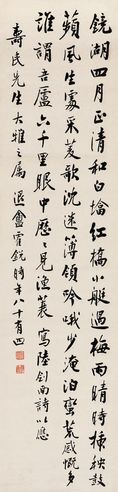 鏡湖四月正清和白塔紅橋小艇過梅雨晴時插秧鼓
蘋風生處采菱歌沈迷簿領吟哦少淹泊蠻荒感慨多
誰謂吾廬六千里眼中歷歷見漁蓑寫陸劍南詩以應
壽民先生大雅之屬 盦銳時年八十有四